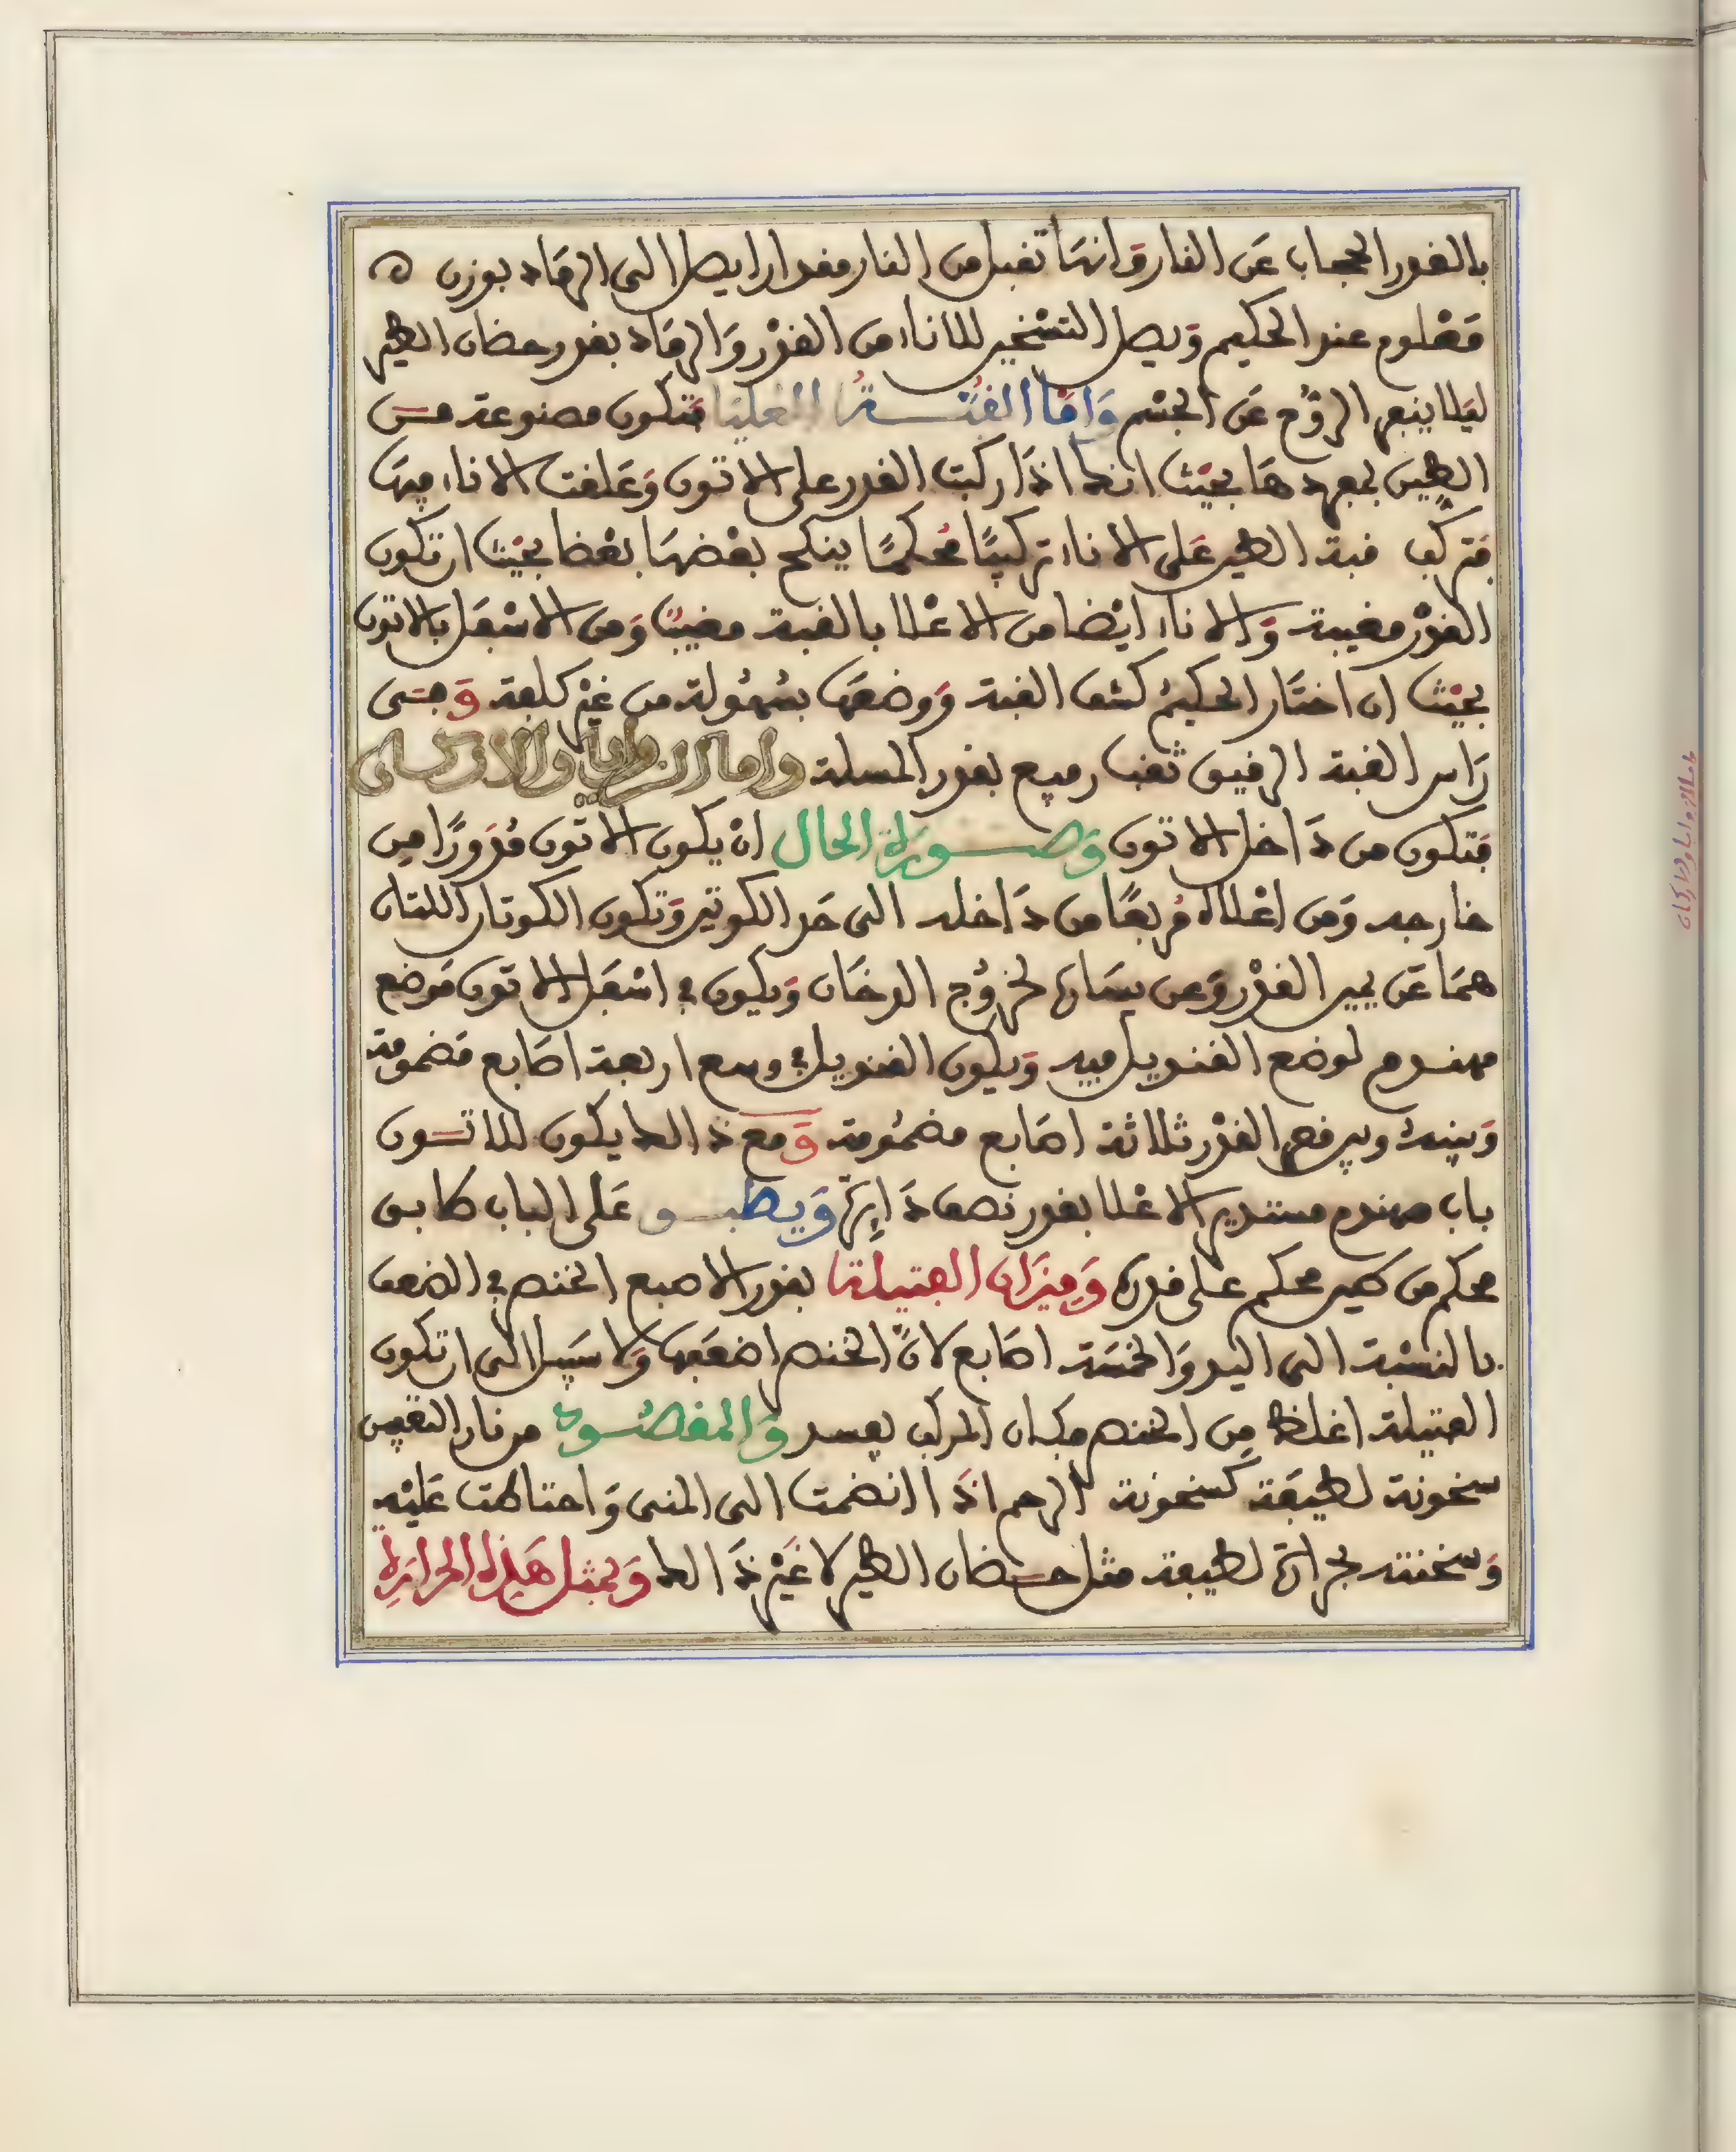 بالقدر الحجاب عن النار وانها تقبل من النار مقدارا يصل الى الرماد بوزن ه
معلوم عند الحكيم ويصل التسخين للاناء من القدر والرماد بقدر حضان الطير
ليلا ينفر الروح عن الجسم واما القبة العليا فتكون مصنوعة من
الطين بمعهدها بحيث انك اذا ركبت القدر على الاتون وعلقت الاناء فيها
فتركب قبة الطين على الاناء تركيبًا محكمًا ينكح بعضها بعضا بحيث ان تكون
القدر مغيبة والاناء ايضا من الاعلا بالقبة مغيبًا ومن الاسفل بالاتون
بحيث ان اختار الحكيم كشف القبة ووضعها بسهولة من غير كلفة وفى
راس القبة الرقيق ثقب رفيع بقدر المسلة واما الزوايا والاركان
فتكون من داخل الاتون وصورة الحال ان يكون الاتون مدورًا من
خارجه ومن اعلاه مربعًا من داخله الى حد الكوتين وتكون الكوتان اللتان
هما عن يمين القدر وعن يسارها لخروج الدخان ويكون في اسفل الاتون موضع
مهندم لوضع القنديل فيه ويكون القنديل في وسع اربعة اصابع مضمومة
وبينه وبين قعر القدر ثلاثة اصابع مضمومة ومع ذالك يكون للاتون
باب مهندم مستدير الاعلا بقدر نصف دايرة ويطبق على الباب طابق
محكم من طين محكم على قدره وميزان الفتيلة بقدر الاصبع الخنصر في الضعف
بالنسبة الى اليد والخمسة اصابع لانّ الخنصر اضعفها ولا سبيل الى ان تكون
الفتيلة اغلظ من الخنصر فكان المركب يفسد والمقصود من نار التعفين
سخونة لطيفة كسخونة الرحم اذا انضمت الى المنى واحتاطت عليه
وسخنته بحرارة لطيفة مثل حضان الطير لا غير ذالك وبمثل هذه الحرارة